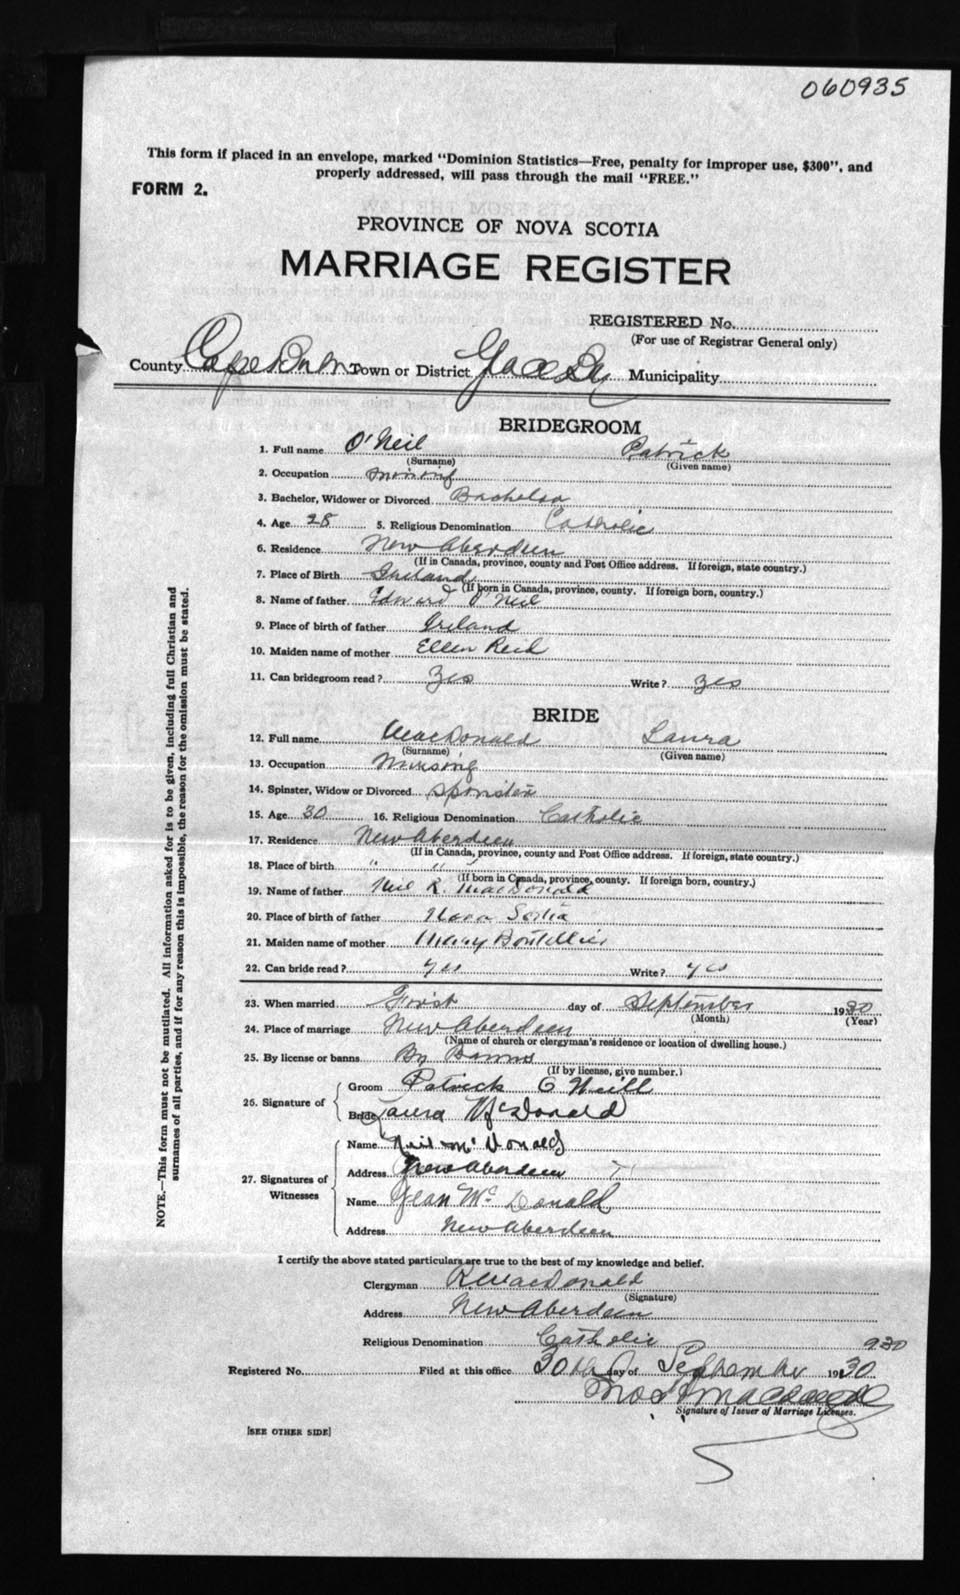 060935
This form if placed in an envelope, marked "Dominion Statistics—Free, penalty for improper use, $300", and
properly addressed, will pass through the mail "FREE."
FORM 2.
PROVINCE OF NOVA SCOTIA
MARRIAGE REGISTER
REGISTERED No.
(For use of Registrar General only)
County Cape Town or District Glace Bay Municipality
BRIDEGROOM
1. Full name O'Neil Patrick
(Surname) (Given name)
2. Occupation mining
3. Bachelor, Widower or Divorced Bachelor
4. Age 28 5. Religious Denomination Catholic
6. Residence New Aberdeen
(If in Canada, province, county and Post Office address. If foreign, state country.)
7. Place of Birth Ireland
(If born in Canada, province, county. If foreign born, country.)
8. Name of father Edward O'Neil
9. Place of birth of father Ireland
10. Maiden name of mother Ellen Reid
11. Can bridegroom read? Yes Write? yes
BRIDE
12. Full name MacDonald Laura
(Surname) (Given name)
13. Occupation Nursing
14. Spinster, Widow or Divorced Spinster
15. Age 30 16. Religious Denomination Catholic
17. Residence New Aberdeen
(If in Canada, province, county and Post Office address. If foreign, state country.)
18. Place of birth " "
(If born in Canada, province, county. If foreign born, country.)
19. Name of father Neil R. MacDonald
20. Place of birth of father Nova Scotia
21. Maiden name of mother Mary Boutillier
22. Can bride read? yes Write? yes
23. When married First day of September 1930
(Month) (Year)
24. Place of marriage New Aberdeen
(Name of church or clergyman's residence or location of dwelling house.)
25. By license or banns By Banns
(If by license, give number.)
26. Signature of Groom Patrick O Neill
Bride Laura McDonald
27. Signatures of Witnesses
Name Neil McDonald
Address New Aberdeen
Name Jean McDonald
Address New Aberdeen
I certify the above stated particulars are true to the best of my knowledge and belief.
Clergyman R. MacDonald
(Signature)
Address New Aberdeen
Religious Denomination Catholic 930
Registered No. Filed at this office 30th day of September 1930
Signature of Issuer of Marriage Licenses.
[SEE OTHER SIDE]
NOTE.—This form must not be mutilated. All information asked for is to be given, including full Christian and
surnames of all parties, and if for any reason this is impossible, the reason for the omission must be stated.